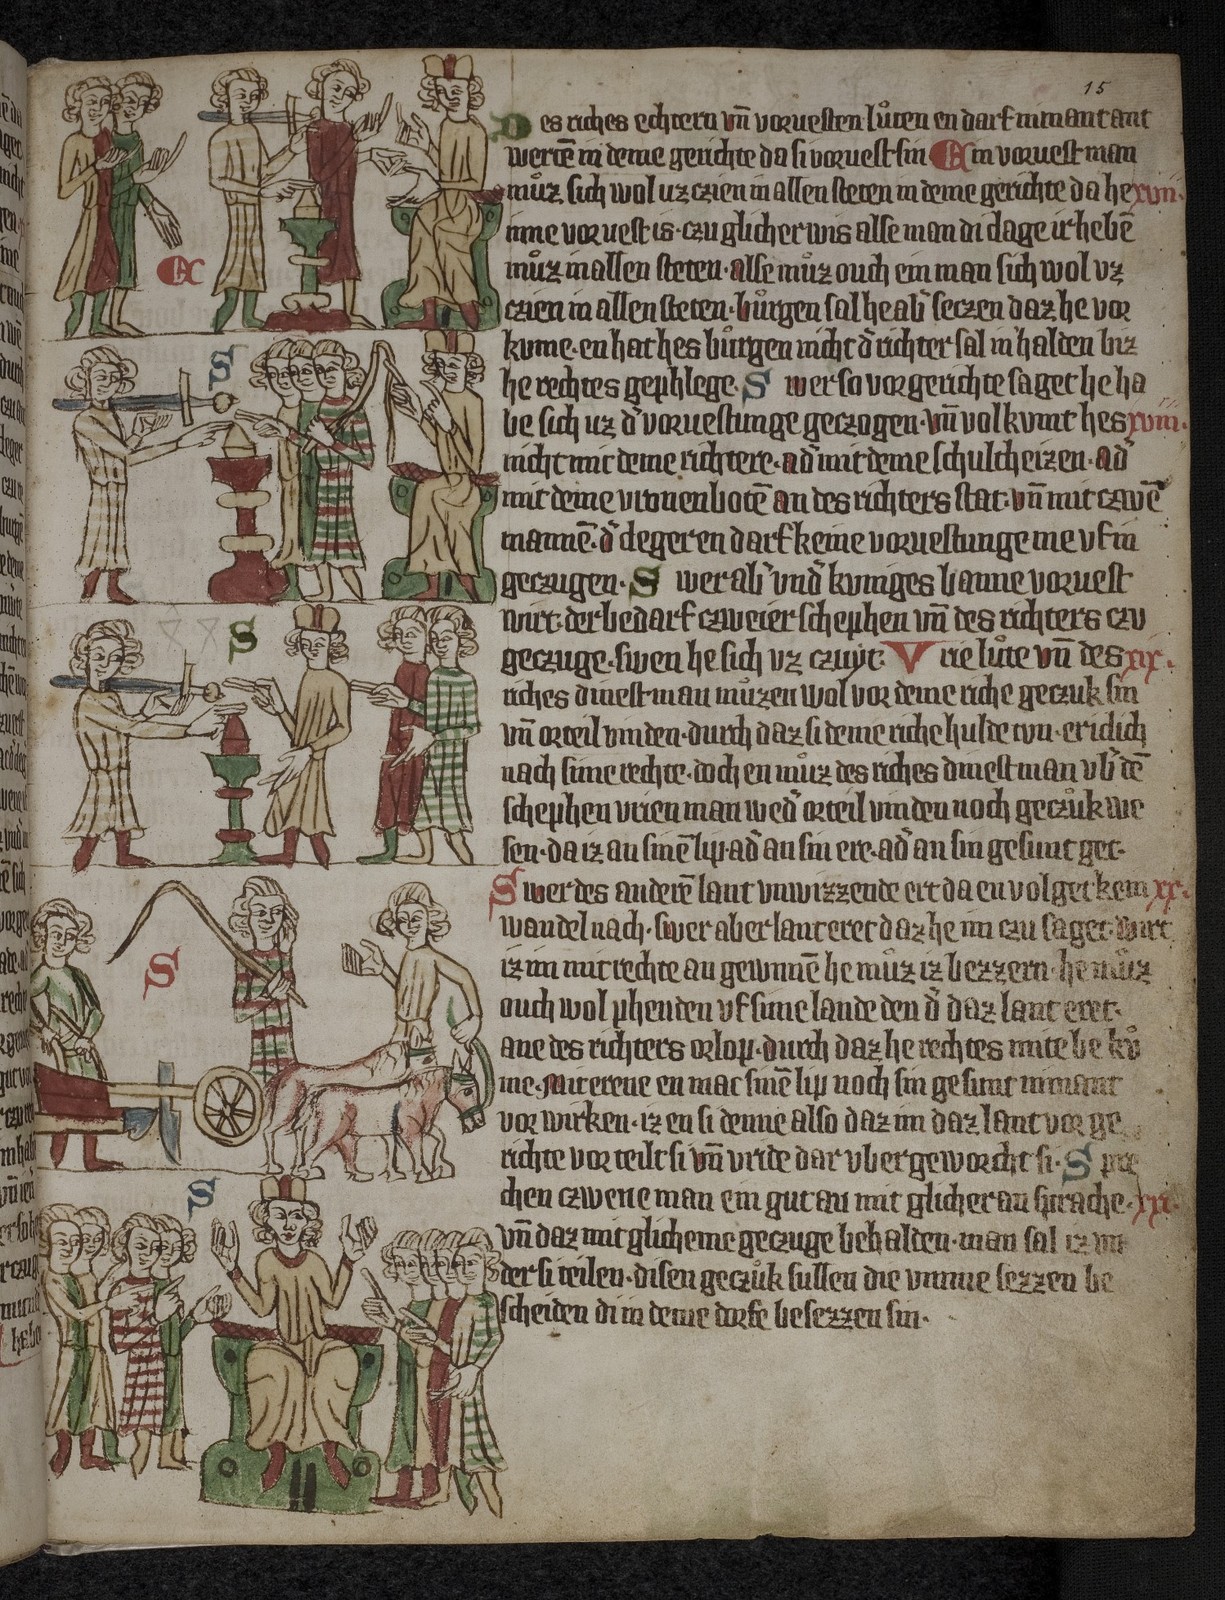 15
Des riches echtern vn̄ voruesten lůten en darf nimant ant
werte in deme gerichte da si voruest sin Ein voruest man
můz sich wol uz czien in allen steten in deme gerichte da he xvii.
inne voruest is. czu glicher wis alse man di clage ir hebē
můz in allen steten. alse můz ouch ein man sich wol vz
czien in allen steten. bůrgen sal he ab̕ seczen daz he vor
kvme. en hat hes bůrgen nicht d̕ richter sal in halden biz
he rechtes gephlege. S wer so vor gerichte saget he ha
be sich uz d̕ voruestunge geczogen. vn̄ volkvmt hes xviii.
nicht mit deme richtere. ad̕ mit deme schulcheizen. ad̕
mit deme vronenbotē an des richters stat. vn̄ mit czwē
mannē. d̕ cleger en darf keine voruestunge me vf in
geczugen. S wer ab̕ vnd̕ kuniges banne voruest
wirt. der bedarf czweier schephen vn̄ des richters czv
geczuge. swen he sich vz czuyt. Vrie lůte vn̄ des xix.
riches dinestman můzen wol vor deme riche geczuk sin
vn̄ orteil vinden. durch daz si deme riche hulde tvn. er iclich
nach sime rechte. doch en můz des riches dinestman vb̕ dē
schephen vrien man wed̕ orteil vinden noch geczůk we
sen. da iz an sinē lip. ad̕ an sin ere. ad̕ an sin gesunt get.
Swer des anderē lant vnwizzende ert da en volget kein xx.
wandel nach. swer aber lant eret daz he im czu saget. wirt
iz im mit rechte an gewunnē he můz iz bezzern. he můz
ouch wol phenden vf sime lande den d̕ daz lant eret.
ane des richters orlop. durch daz he rechtes mite be kv̊
me. Mit erene en mac sinē lip noch sin gesunt nimant
vor wirken. iz en si denne also daz im daz lant vor ge
richte vor teilt si vn̄ vride dar vber geworcht si. S pre
chen czwene man ein gut an mit glicher an sprache. xxi.
vn̄ daz mit glicheme geczuge behalden. man sal iz vn
der si teilen. disen geczůk sullen die vmme sezzen be
scheiden di in deme dorfe besezzen sin.